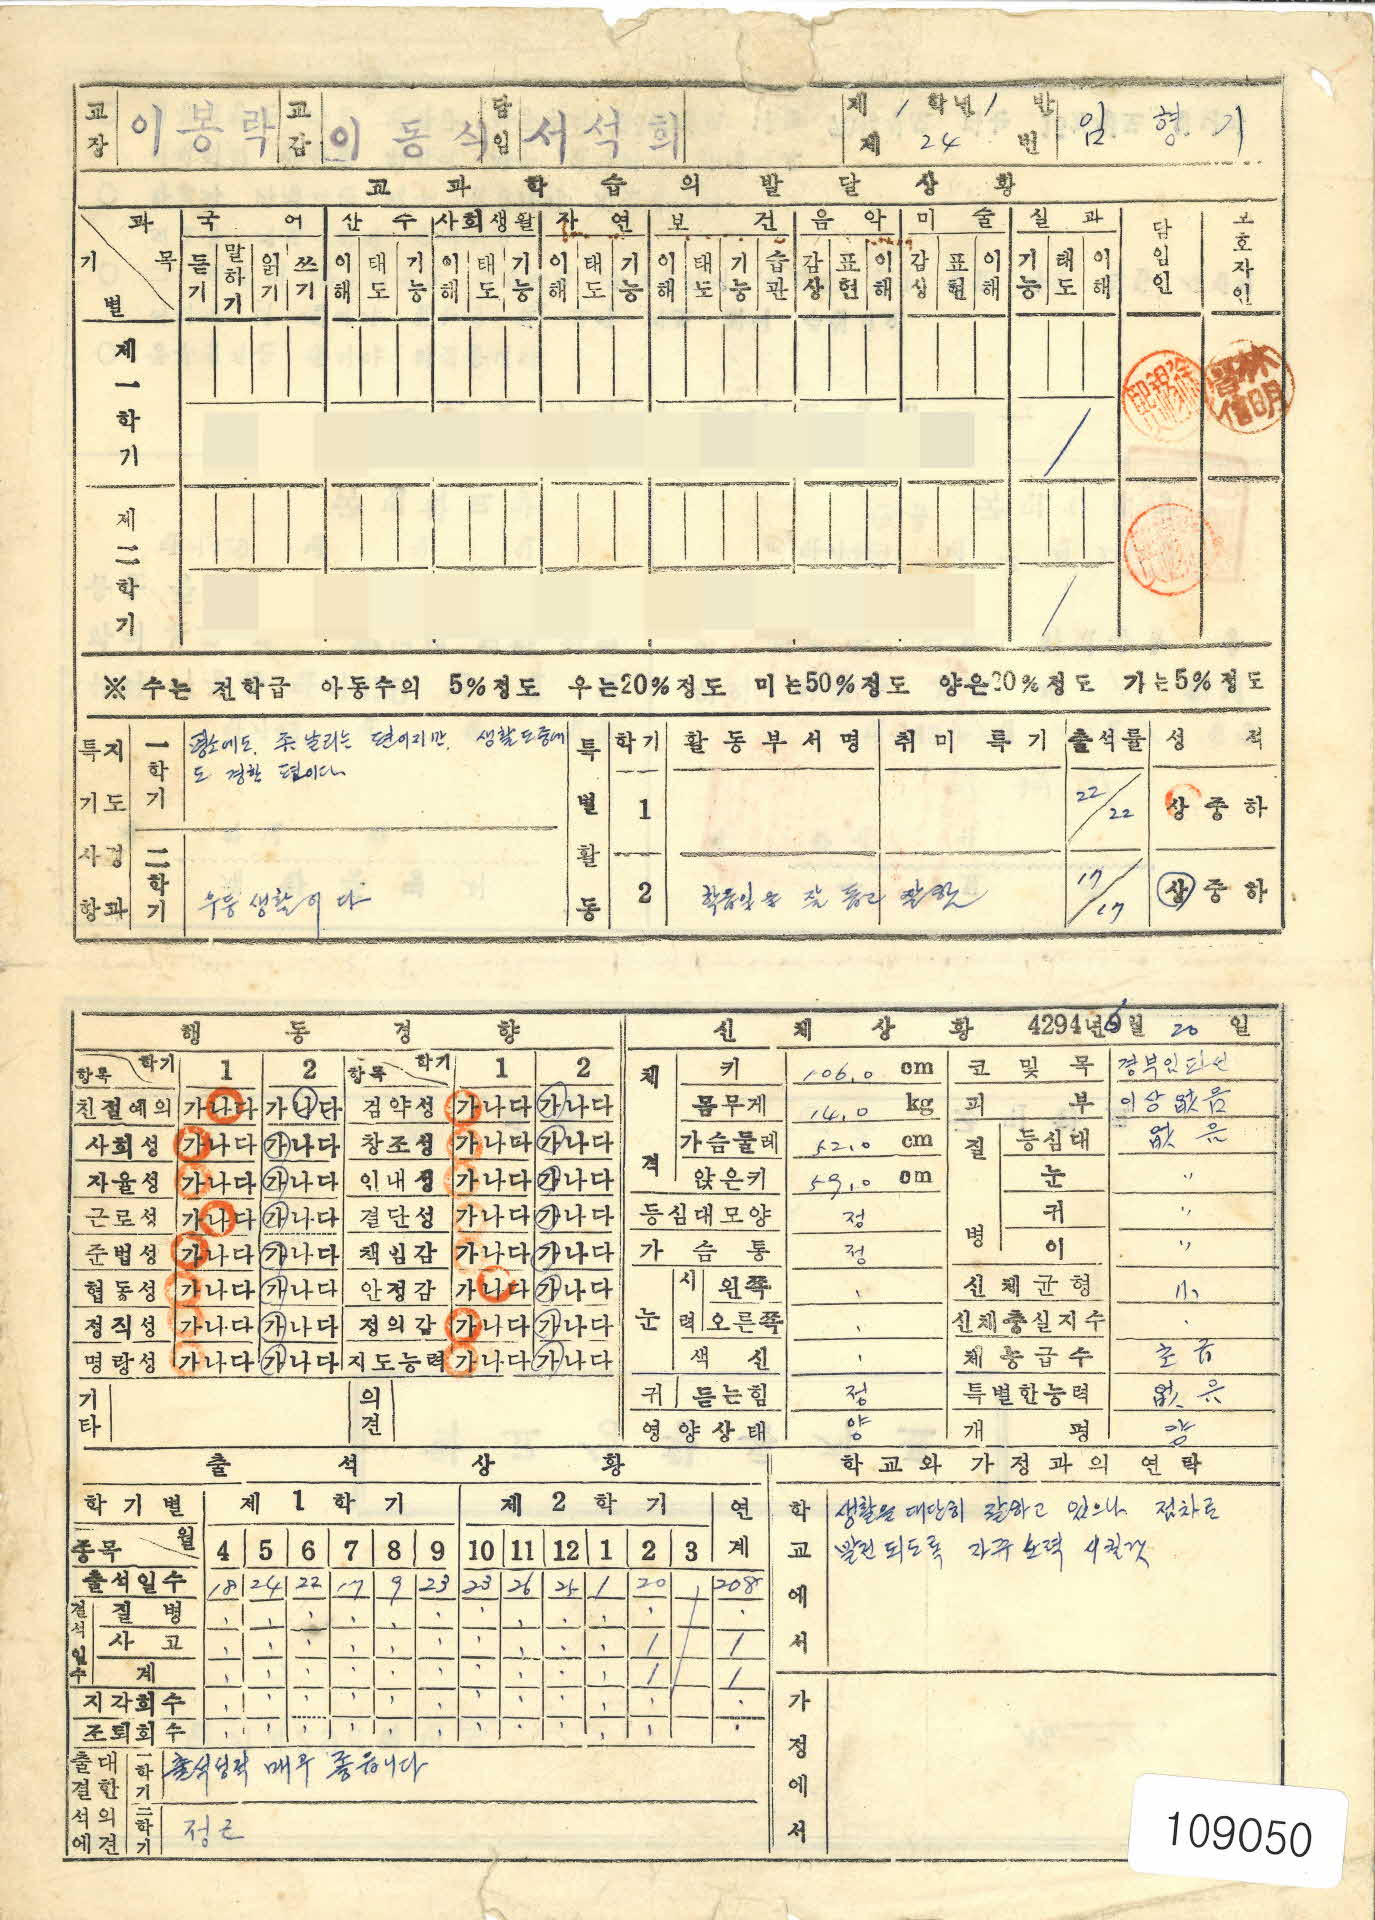 교장 이봉락 교감 이동식 담임 서석희 제 1 학년 1 반 제 24 번 임형기
교과학습의 발달상황
과목 기별 국어 산수 사회생활 자연 보건 음악 미술 실과 담임인 보호자인
듣기 말하기 읽기 쓰기 이해 태도 기능 이해 태도 기능 이해 태도 기능 이해 태도 기능 습관 감상 표현 이해 감상 표현 이해 기능 태도 이해
제一학기 /
林明
제二학기 /
※ 수는 전학급 아동수의 5%정도 우는20%정도 미는50%정도 양은20%정도 가는5%정도
특기사항 지도경과 一학기 평소에도 날리는 편이지만 생활도중에
도 경한 편이다
二학기 우등생활이다
특별활동 학기 활동부서명 취미 특기 출석률 성적
1 22/22 상 중 하
2 17/17 상 중 하
행동경향
항목 학기 1 2 항목 학기 1 2
친절예의 가나다 가나다 검약성 가나다 가나다
사회성 가나다 가나다 창조성 가나다 가나다
자율성 가나다 가나다 인내성 가나다 가나다
근로성 가나다 가나다 결단성 가나다 가나다
준법성 가나다 가나다 책임감 가나다 가나다
협동성 가나다 가나다 안정감 가나다 가나다
정직성 가나다 가나다 정의감 가나다 가나다
명랑성 가나다 가나다 지도능력 가나다 가나다
기타 의견
신체상황 4294년 6월 20일
체격 키 106.0 cm 코 및 목 경부임파선
몸무게 14.0 kg 피부 이상없음
가슴둘레 52.0 cm 질병 등심대 없음
앉은키 59.0 cm 눈 〃
등심대모양 정 귀 〃
가슴통 정 이 〃
눈 시력 왼쪽 신체균형 小
오른쪽 신체충실지수
색신 체능급수 초급
귀 듣는힘 정 특별한능력 없음
영양상태 양 개평 양
출석상황
학기별 제1학기 제2학기 연계
종목 월 4 5 6 7 8 9 10 11 12 1 2 3
출석일수 18 24 22 17 9 23 23 26 25 1 20 208
결석일수 질병
사고 1 1
계 1 1
지각회수
조퇴회수
출결석에 대한 의견 一학기 출석성적 매우 좋읍니다
二학기 정근
학교와 가정과의 연락
학교에서 생활을 대단히 잘하고 있으나 점차로
발전되도록 자꾸 노력 시킬것
가정에서
109050